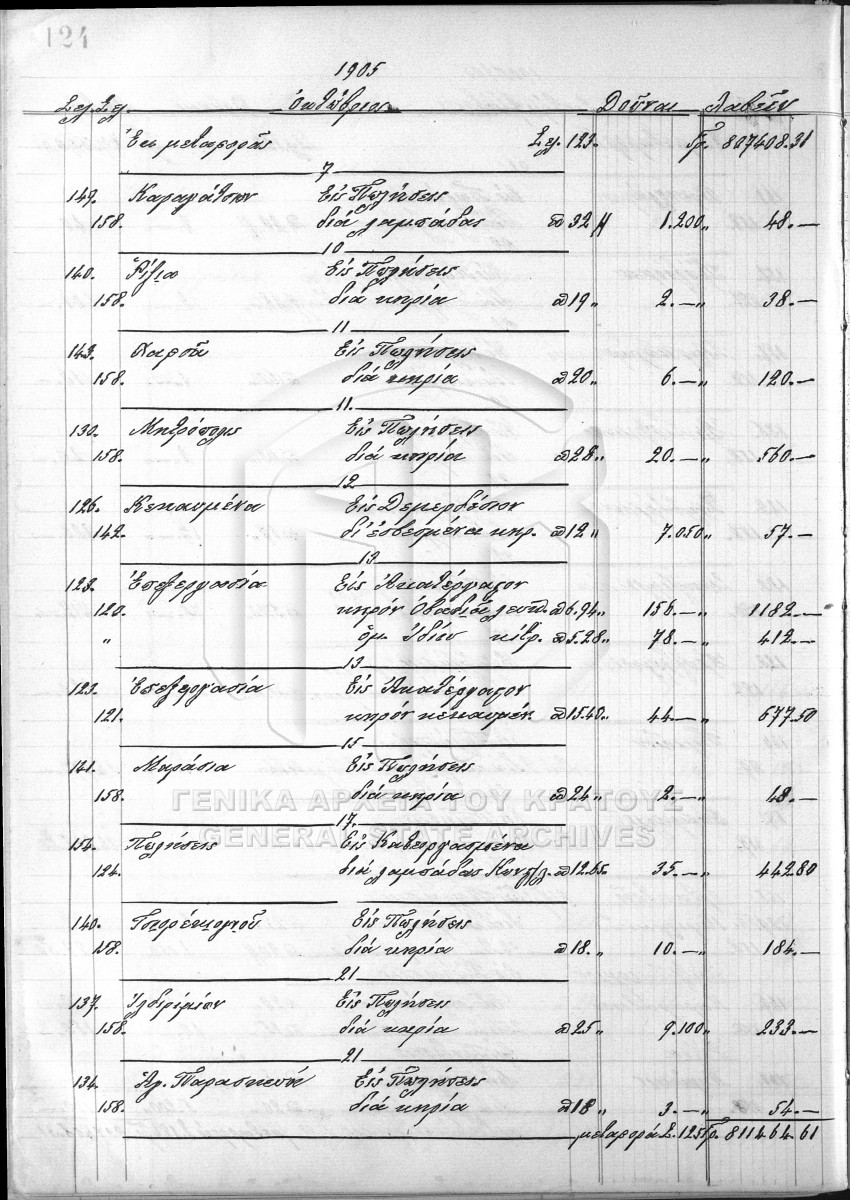 124
1905
Σελ. Σελ. Ὀκτώβριος Δοῦναι Λαβεῖν
Ἐκ μεταφορᾶς Σελ. 123. Γρ. 807408.31
7
147. Καραγάτσιον Εἰς Πωλήσεις
158. διά λαμπάδας π 32 " 1.200 " 48.—
10
140. Ρίζια Εἰς Πωλήσεις
158. διά κηρία π 19 " 2.— " 38.—
11
143. Χαρσᾶ Εἰς Πωλήσεις
158. διά κηρία π 20 " 6.— " 120.—
11.
130. Μητρόπολις Εἰς Πωλήσεις
158. διά κηρία π 28 " 20.— " 560.—
12
126. Κεκαυμένα Εἰς Δεμερδέσιον
142. δι' ἐσβεσμένα κηρ. π 12 " 7.050 " 57.—
13
123. Ἐπεξεργασία Εἰς Ἀκατέργαστον
120. κηρόν Ὀβαδιᾶ λευκ. π 6.94 " 156.— " 1182.—
" ὅμ. Ἰδίου κίτρ. π 5.28 " 78.— " 412.—
13
123. Ἐπεξεργασία Εἰς Ἀκατέργαστον
121. κηρόν κεκαυμέν. π 15.40 " 44.— " 677.50
15
141. Μαράσια Εἰς Πωλήσεις
158. διά κηρία π 24 " 2.— " 48.—
ΓΕΝΙΚΑ ΑΡΧΕΙΑ ΤΟΥ ΚΡΑΤΟΥΣ
17.
GENERAL STATE ARCHIVES
154. Πωλήσεις Εἰς Κατειργασμένα
124. διά λαμπάδας Κων/π. π 12.65. 35.— " 442.80
140. Εἰς Πωλήσεις
158. διά κηρία π 18. " 10.— " 184.—
21
137. Ἰλδιρίμιον Εἰς Πωλήσεις
158. διά κηρία π 25 " 9.100 " 233.—
21
134. Ἁγ. Παρασκευή Εἰς Πωλήσεις
158. διά κηρία π 18 " 3.— " 54.—
μεταφορά Σ. 125 Γρ. 811464.61